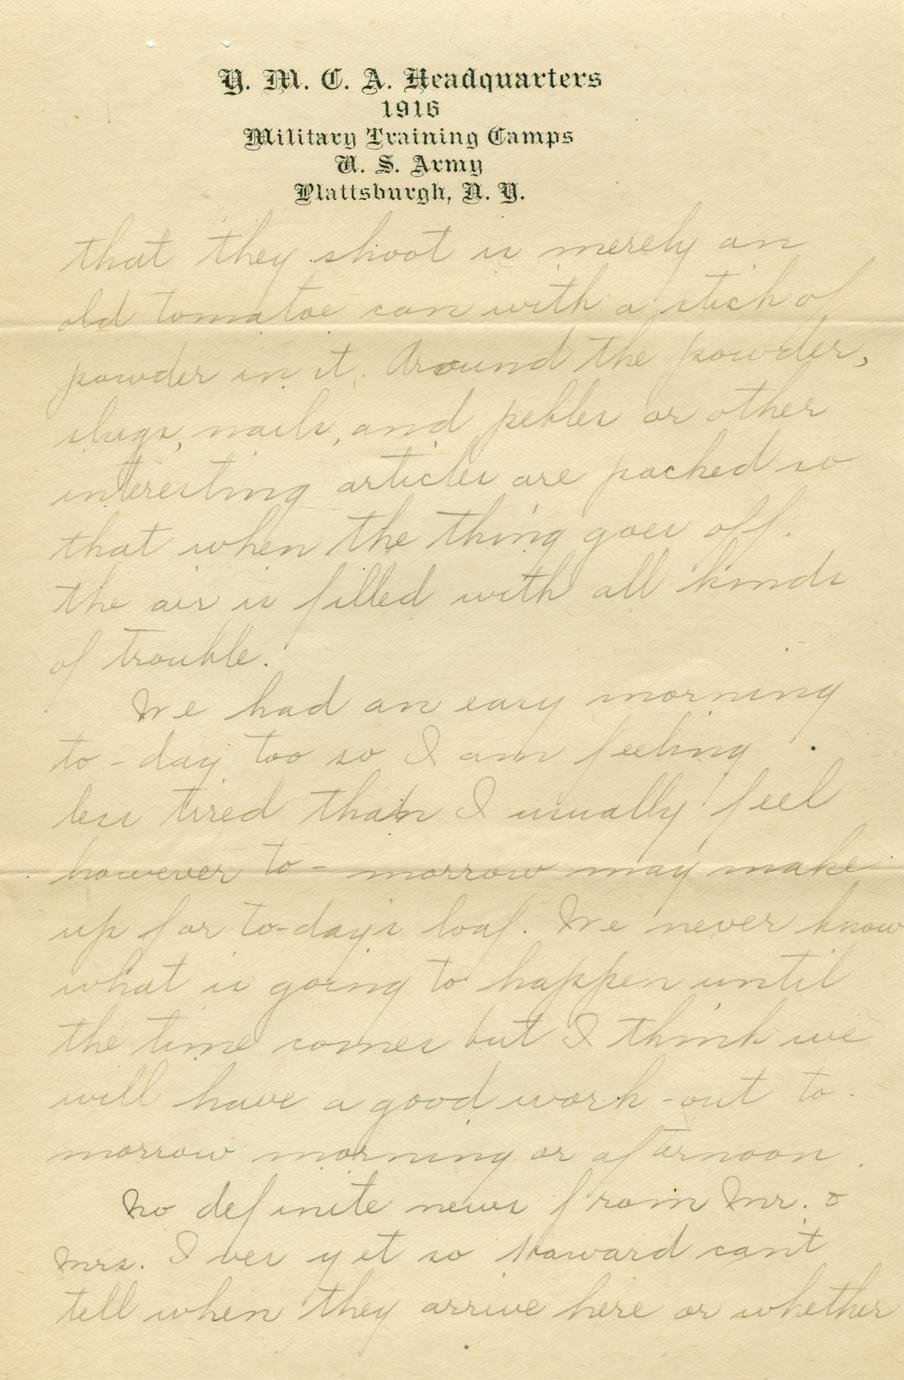 Y. M. C. A. Headquarters
1916
Military Training Camps
U. S. Army
Plattsburgh, N. Y.
that they shoot is merely an
old tomatoe can with a stick of
powder in it. Around the powder,
slugs, nails, and pebles or other
interesting articles are packed so
that when the thing goes off.
the air is filled with all kinds
of trouble.
We had an easy morning
to-day too so I am feeling
less tired than I usually feel
however to-morrow may make
up for to-day's loaf. We never know
what is going to happen until
the time comes but I think we
will have a good work-out to-
morrow morning or afternoon.
No definite news from Mr. &
Mrs. Ives yet so Howard can't
tell when they arrive here or whether